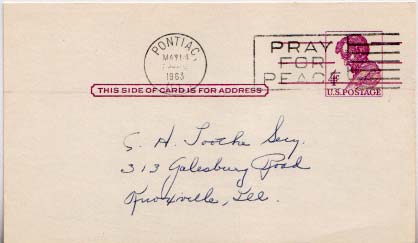 PONTIAC,
MAY
1963
PRAY
FOR
PEACE
4¢
U.S. POSTAGE
THIS SIDE OF CARD IS FOR ADDRESS
S. H. Toothe Secy.
313 Galesburg Road
Knoxville, Ill.